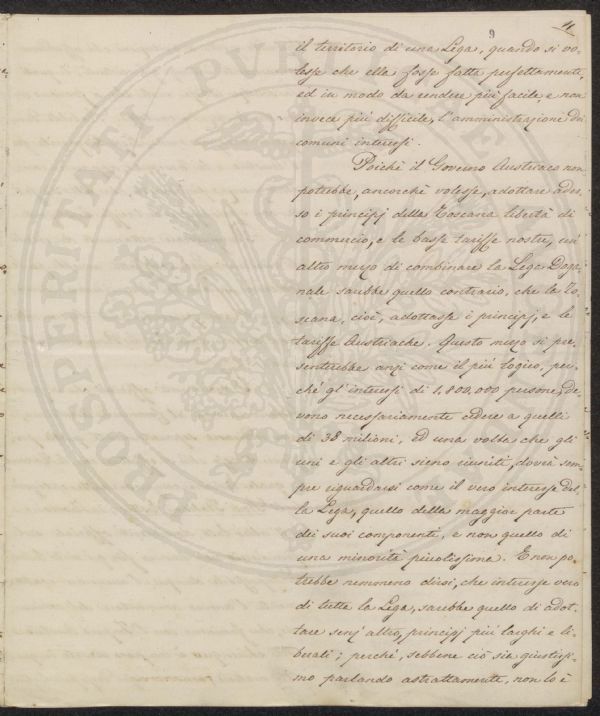 9
11
il territorio di una Lega, quando si vo-
lesse che ella fosse fatta perfettamente,
ed in modo da rendere più facile, e non
invece più difficile, l'amministrazione dei
comuni interessi.
Poichè il Governo Austriaco non
potrebbe, ancorchè volesse, adottare ades-
so i principj della Toscana libertà di
commercio, e le basse tariffe nostre, un'
altro mezzo di combinare la Lega Doga-
nale sarebbe quello contrario, che la To-
scana, cioè, adottasse i principj, e le
tariffe Austriache. Questo mezzo si pre-
senterebbe anzi come il più logico, per-
chè gl'interessi di 1,800,000 persone, de-
vono necessariamente cedere a quelli
di 38 milioni, ed una volta che gli
uni e gli altri sieno riuniti, dovrà sem-
pre riguardarsi come il vero interesse del-
la Lega, quello della maggior parte
dei suoi componenti, e non quello di
una minorità piccolissima. E non po-
trebbe nemmeno dirsi, che interesse vero
di tutta la Lega, sarebbe quello di adot-
tare senz'altro, principj più larghi e li-
berali; perchè, sebbene ciò sia giustissi-
mo parlando astrattamente, non lo è
PROSPERITATI PVBLICAE